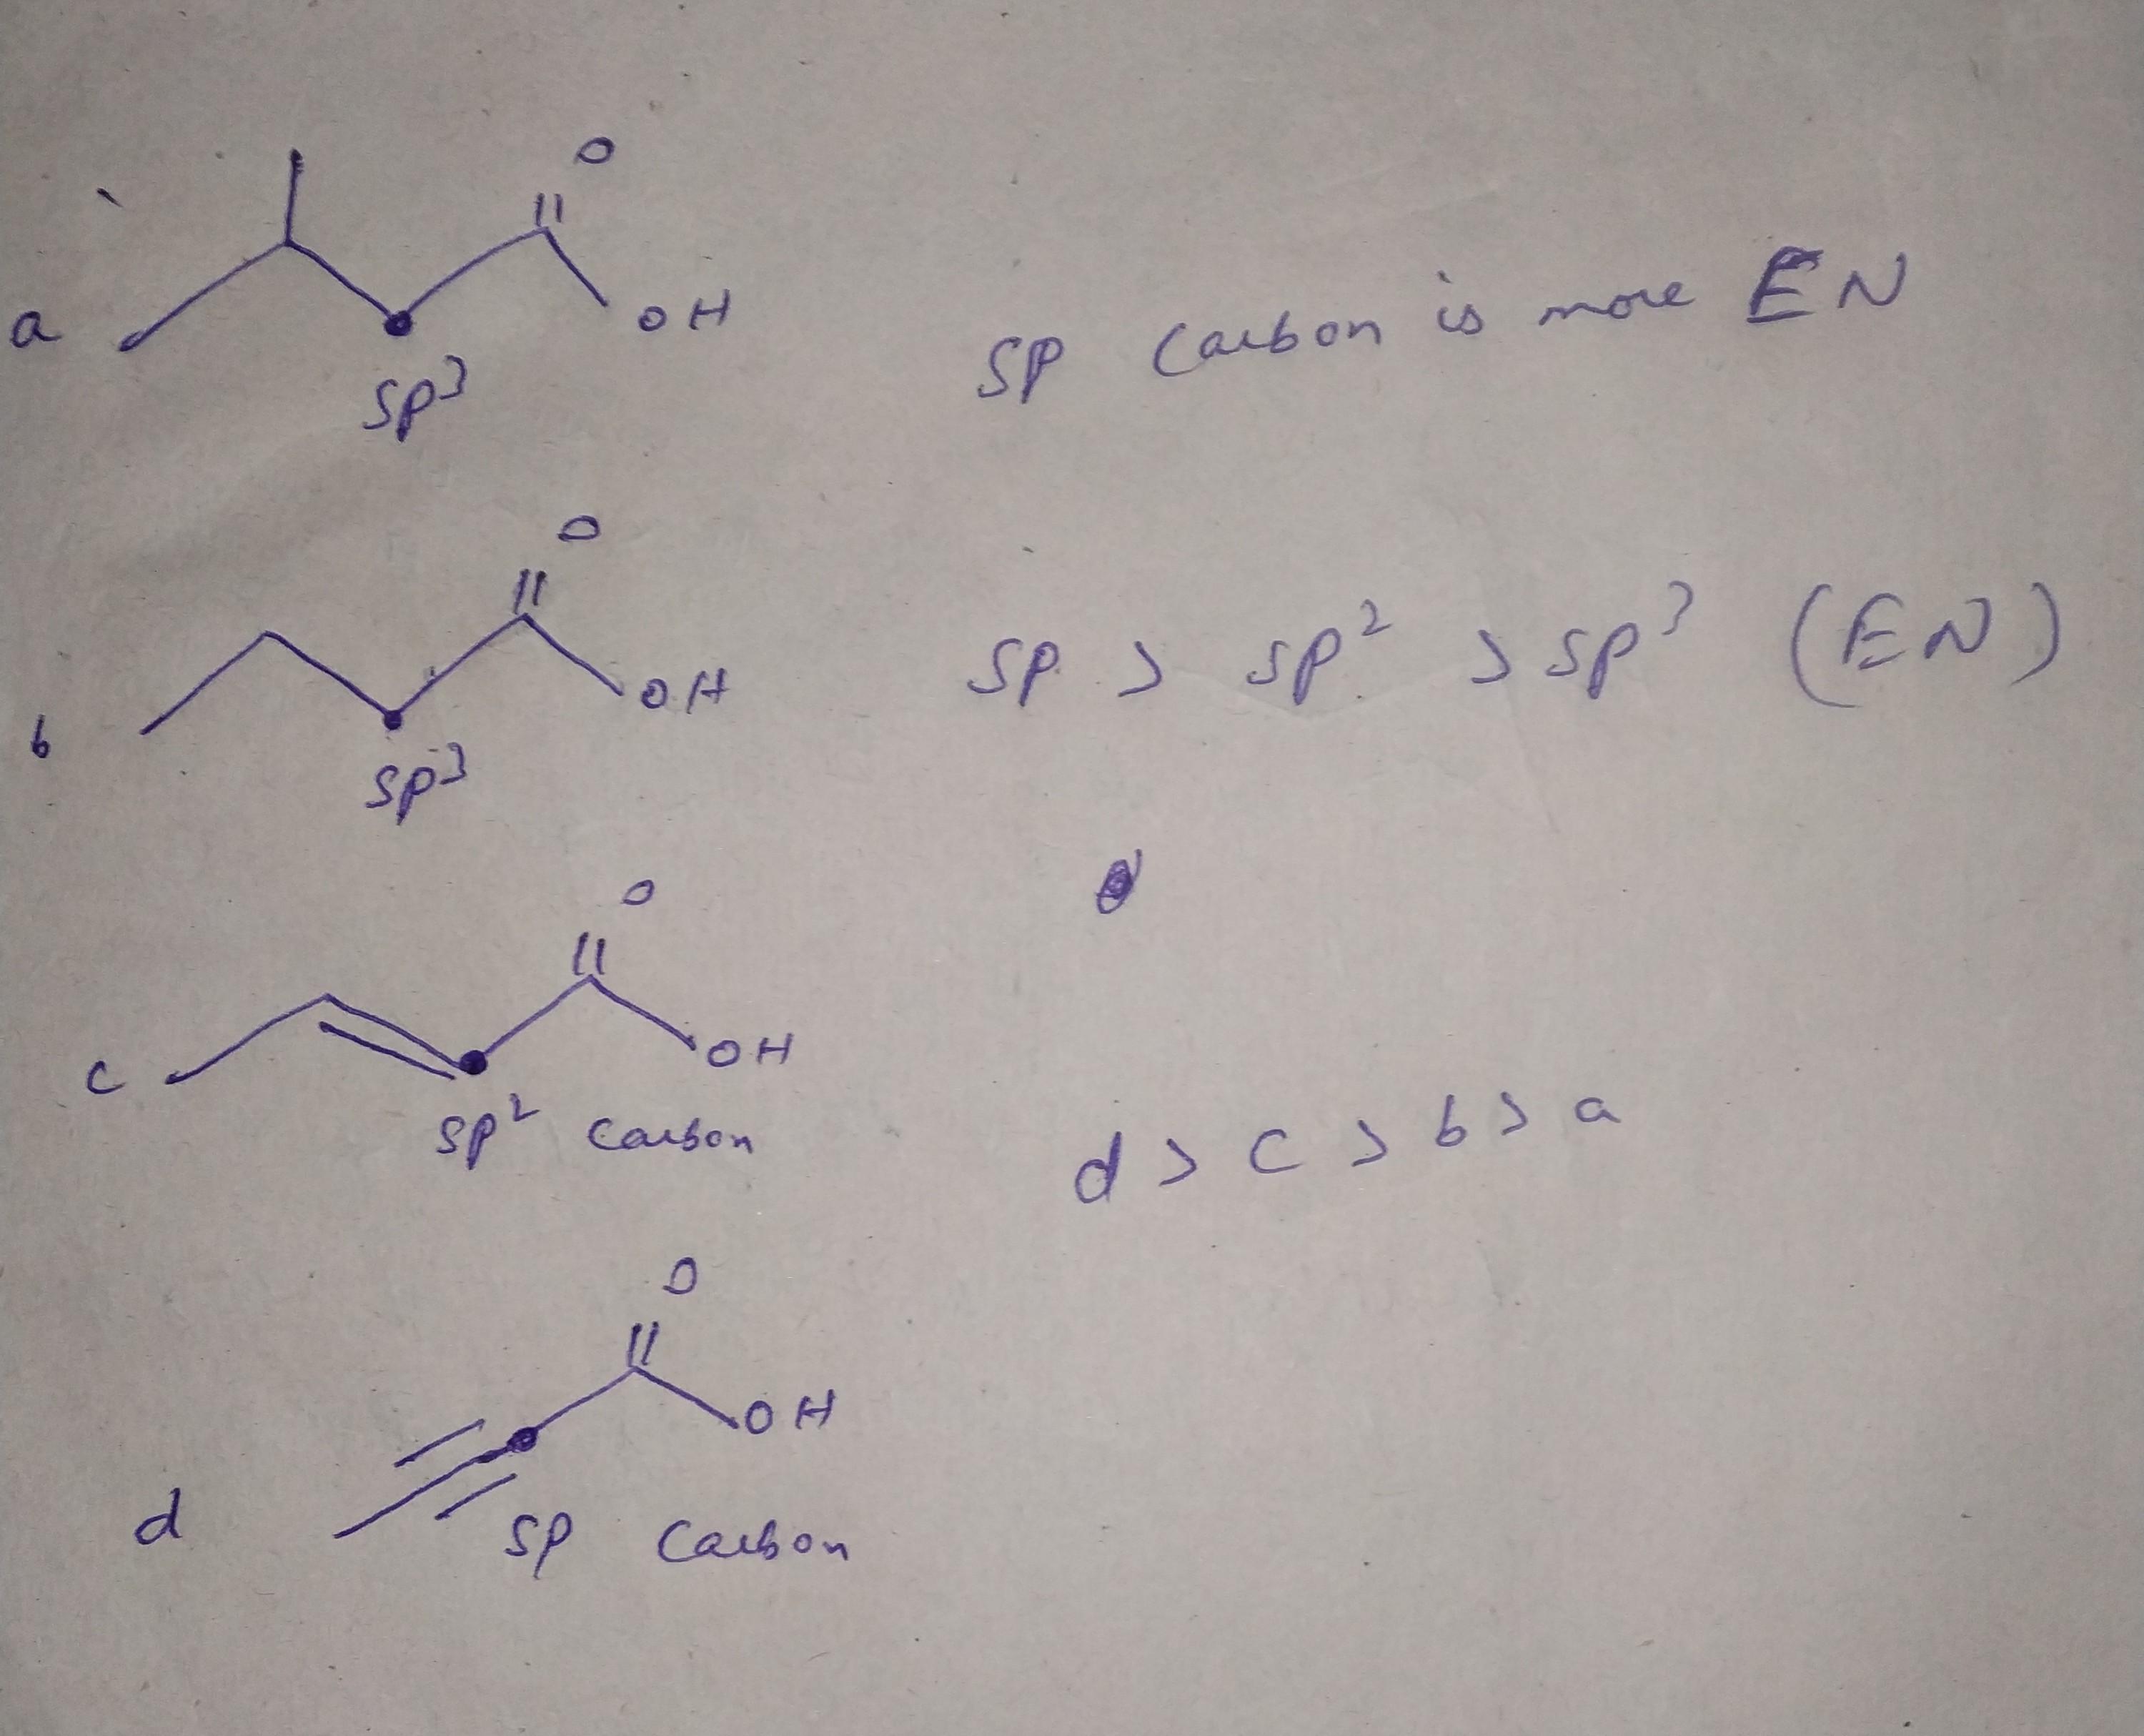 O
||
OH
a
sp³
sp carbon is more EN
O
||
OH
b
sp³
sp > sp² > sp³ (EN)
O
||
OH
c
sp² carbon
d > c > b > a
O
||
OH
d
sp carbon